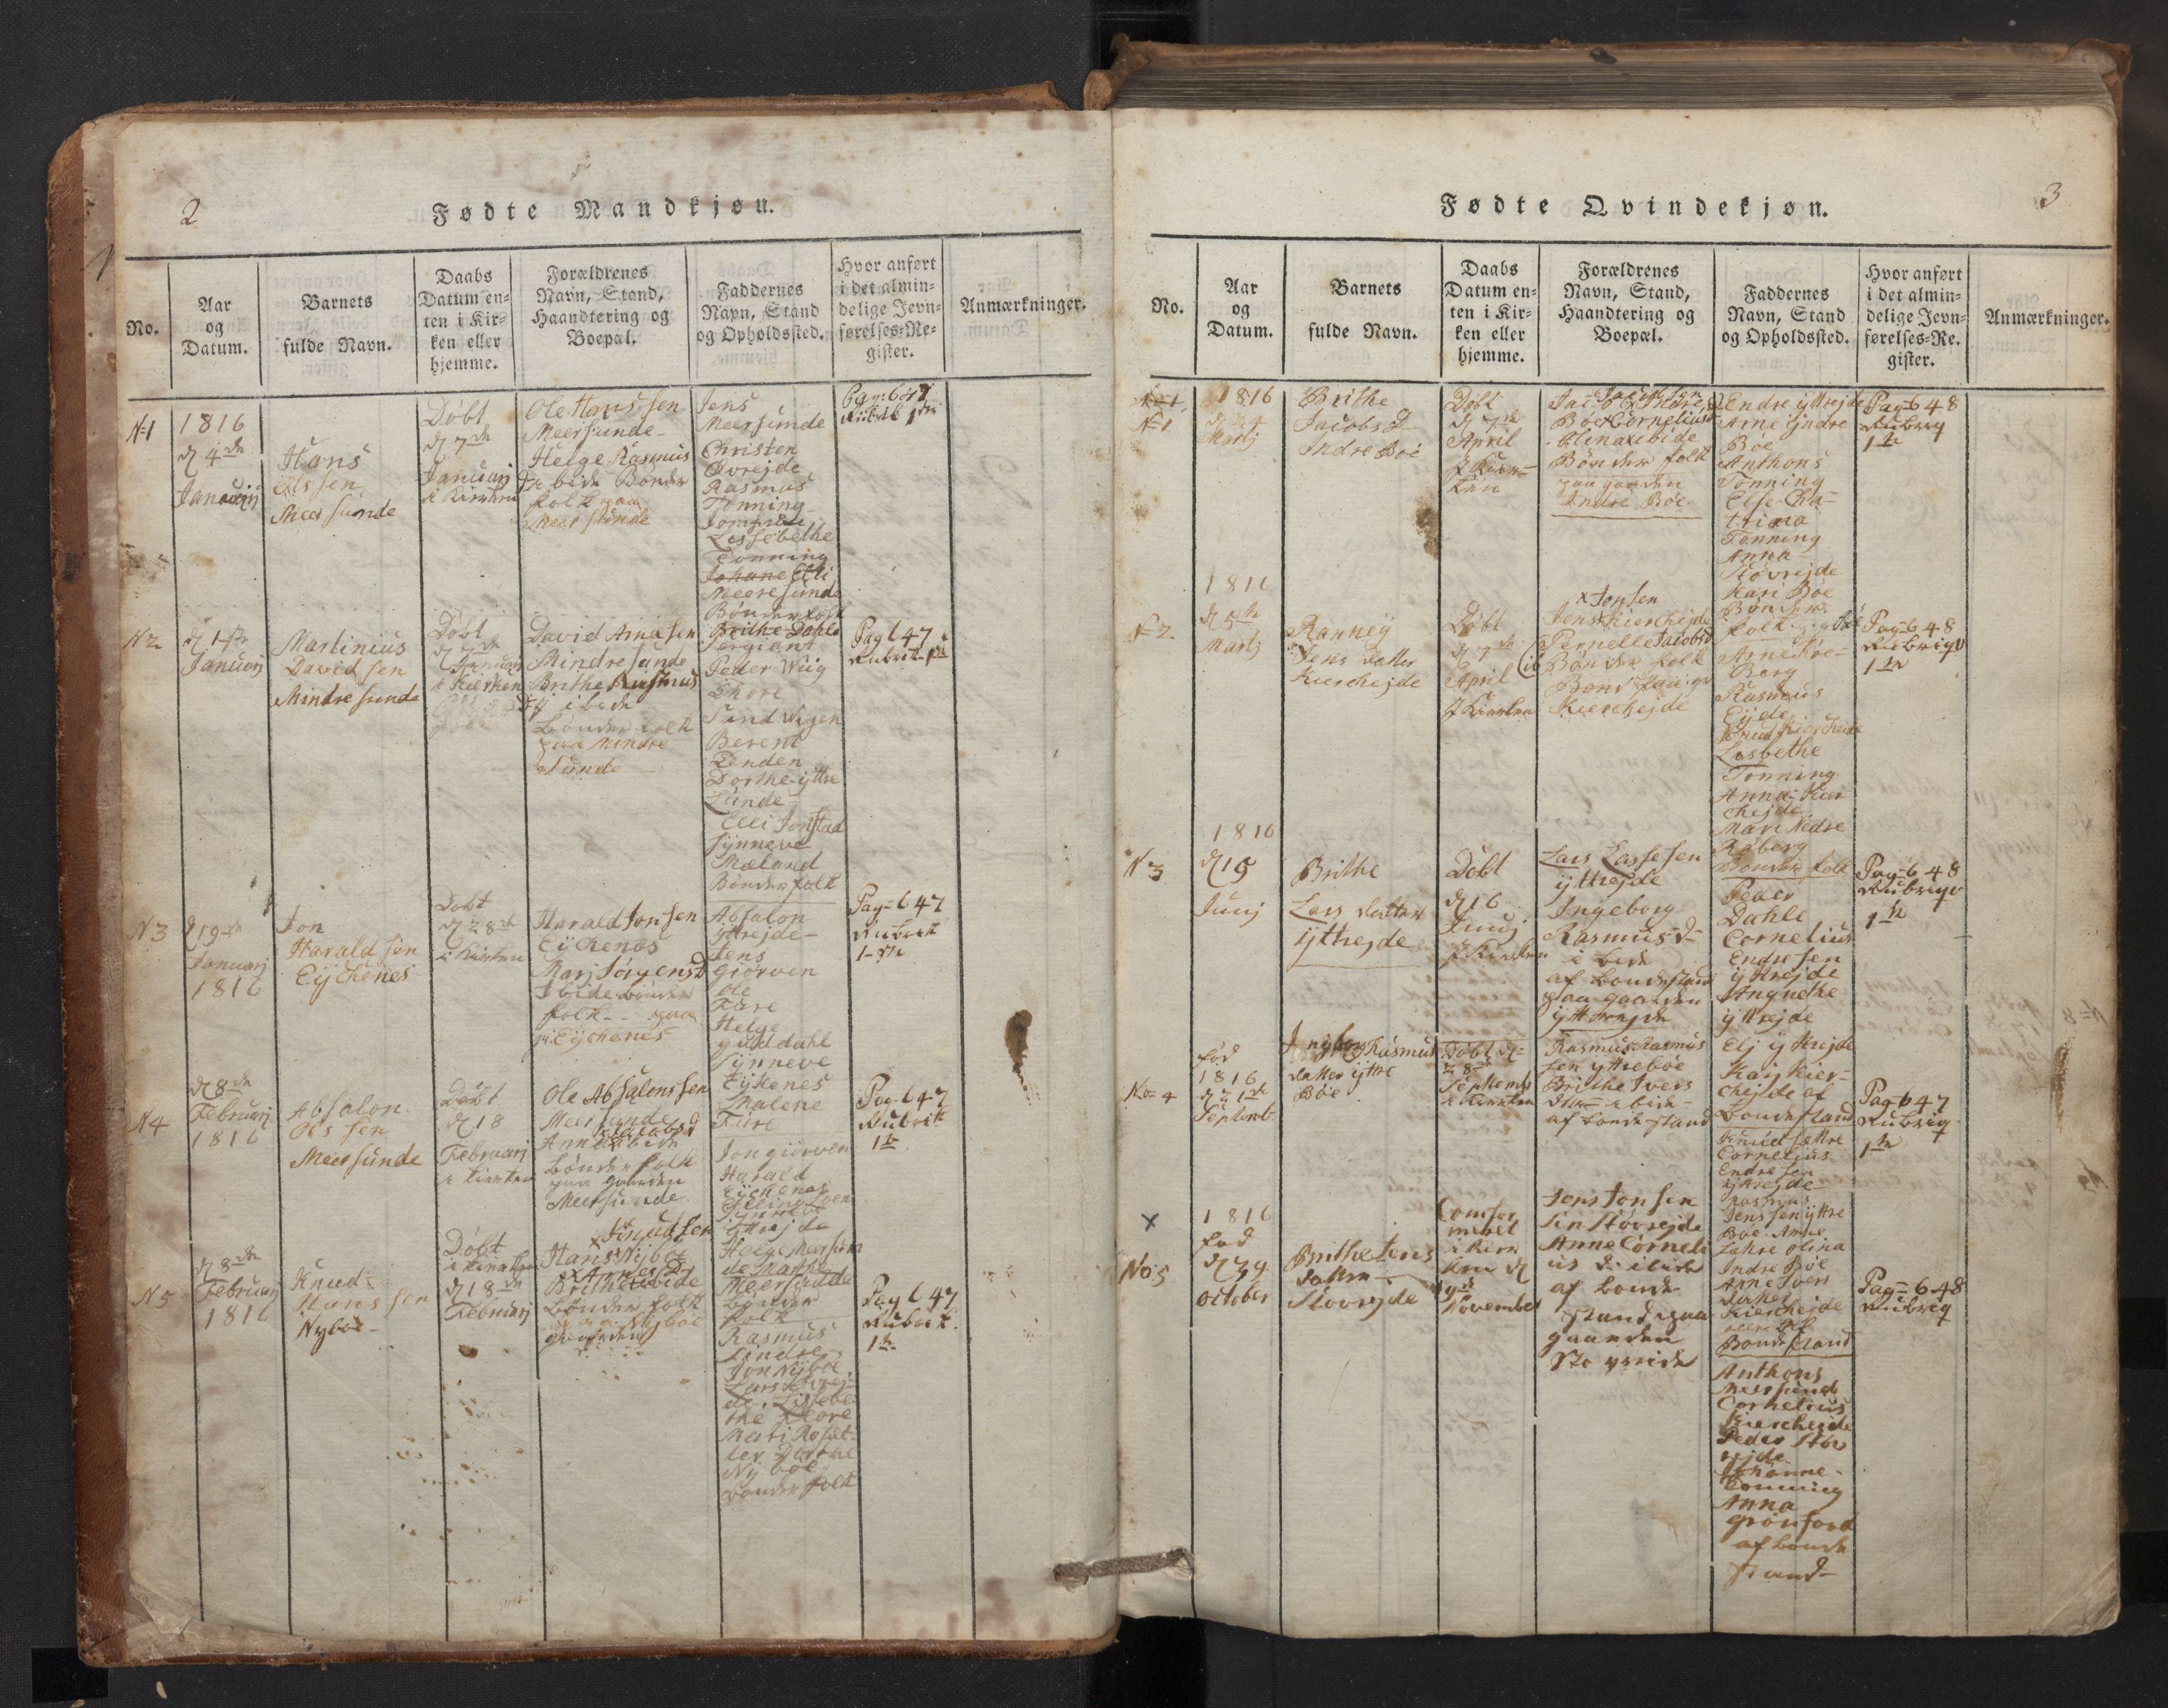 2
Fødte Mandkjøn.
No.
Aar
og
Datum.
Barnets
fulde Navn.
Daabs
Datum en=
ten i Kir=
ken eller
hjemme.
Forældrenes
Navn, Stand,
Haandtering og
Boepæl.
Faddernes
Navn, Stand
og Opholdssted.
Hvor anført
i det almin=
delige Jevn=
førelses=Re=
gister.
Anmærkninger.
N1
1816
d 4de
Januarij
Hans
Olssen
Meersunde
Døbt
d 7de
Januarij
i Kirken
Ole Hanssen
Meersunde
Helge Rasmus
bede Bønder
folk paa
Meersunde
Jens
Meersunde
Christen
Øvrejde
Rasmus
Tonning
Jomfrue
Lissebethe
Tonning
Johane Elli
Meersunde
Bønderfolk
Rubrik 1ste
N2
d 1ste
Januarij
Martinius
Davidsen
Mindresunde
Døbt
d 7de
Januarij
i Kirken
David Arnesen
Mindresunde
Brithe Rasmus
i bede
Bønderfolk
paa Mindre
Sunde
Brithe Dahle
Sergiant
Peder Wiig
Thore
Sandvigen
Berent
Tenden
Dorthe yttre
Sunde
Elli Jonstad
Synneve
Mæland
Bønderfolk
Pag 647
Rubrik 1ste
N3
d 19de
Januarij
1816
Jon
Haraldsen
Eychenes
Døbt
d 28de
i Kirken
Harald Jonsen
Eychenes
Marj Jørgensd
I bede bønder
folk paa
Eychenes
Absalon
yttrejde
Jens
Giørven
Ole
Fure
Helge
guddahl
Synneve
Eykenes
Malene
Fure
Pag 647
Rubrik
1ste
N4
d 8de
Februarj
1816
Absalon
Olssen
Meersunde
Døbt
d 18
Februarj
i Kirken
Ole Absalonssen
Meersunde
Anne
bede
bønderfolk
paa gaarden
Meersunde
Jon giørven
Harald
Eychenes
Synneve
yttrejde
Helge Meersun
de Marthe
Meersunde
bønder
folk
Pag 647
Rubrik
1te
N5
d 8de
Februarj
1816
Knud
Hanssen
Nybøe
Døbt
i Kirken
d 18de
Februarj
Knudsen
Hans Nybøe
Brithe bede
bønderfolk
paa Nybøe
gaarden
Rasmus
Sindre
Jon Nybøe
Lars
de. Lissebe
the Thore
Mari Roset
ter Dorthe
Nybøe
bønderfolk
Pag 647
Rubrik
1te
3
Fødte Qvindekjøn.
No.
Aar
og
Datum.
Barnets
fulde Navn.
Daabs
Datum en=
ten i Kir=
ken eller
hjemme.
Forældrenes
Navn, Stand,
Haandtering og
Boepæl.
Faddernes
Navn, Stand
og Opholdssted.
Hvor anført
i det almin=
delige Jevn=
førelses=Re=
gister.
Anmærkninger.
N1
1816
Martj
Brithe
Jacobs D
Indre Bøe
Døbt
d 7de
April
i Kir=
ken
Jacob Indre
Bøe Cornelius
Olina i bede
Bønderfolk
paa gaarden
Indre Bøe
Endre yttrejde
Arne Indre
Bøe
Anthons
Tonning
Else Ca=
trina
Tonning
Anna
Støvrejde
Kari Bøe
Bønder
folk
Pag=648
Rubriq
1te
N2
1816
d 5te
Martj
Ranney
Jens datter
Kierchejde
Døbt
d 7de
April
i Kirken
Jonsen
Jens Kierchejde
Pernelle Jacobsd
Bønderfolk
Kierchejde
Arne Roe=
Berg
Rasmus
Eyde
Knud Kiercheide
Lesbethe
Tonning
Anna Kier
chejde
Mari Nedre
Raberg
Bønderfolk
Pag=648
Rubriqv
1te
N3
1816
d 15
Junj
Brithe
Lars datter
yttrejde
Døbt
d 16
Junj
i Kirken
Lars Lassesen
yttrejde
Ingeborg
Rasmus=d
i bede
af bondestand
paa gaarden
yttrejde
Peder
Dahle
Cornelius
Endresen
yttrejde
Angnethe
yttrejde
Elj yttrejde
Kaj Kier=
chejde af
bondestand
Pag=648
Rubriqv
1te
No=4
fød
1816
d 21de
Septemb
Ingborg Rasmus
datter yttre
Bøe
Døbt d
28de
Septemb
i Kirken
Rasmus Rasmus
sen yttrebøe
Brithe Ivers
dtr i bede
af bondestand
Knud Sættre
Cornelius
Endresen
yttrejde
Rasmus
Jenssen yttre
Bøe. Anne
Sættre Olina
Indre Bøe
Anne Ivers
datter
Kierchejde
Bondestand
Pag 647
Rubriq
1te
x
No 5
1816
fød
d 29
October
Brithe Jens
datter
Støvrejde
Comfir
meret
i Kir
ken d
9de
November
Jens Jonsen
Støvrejde
Anne Corneli
us d i bede
af bonde
stand paa
gaarden
Støvreide
Anthons
Meersund
Cornelius
Kierchejde
Peder Støv
rejde
Johanne
Tonning
Anna
Grønford
af bonde
stand
Pag=648
Rubriq